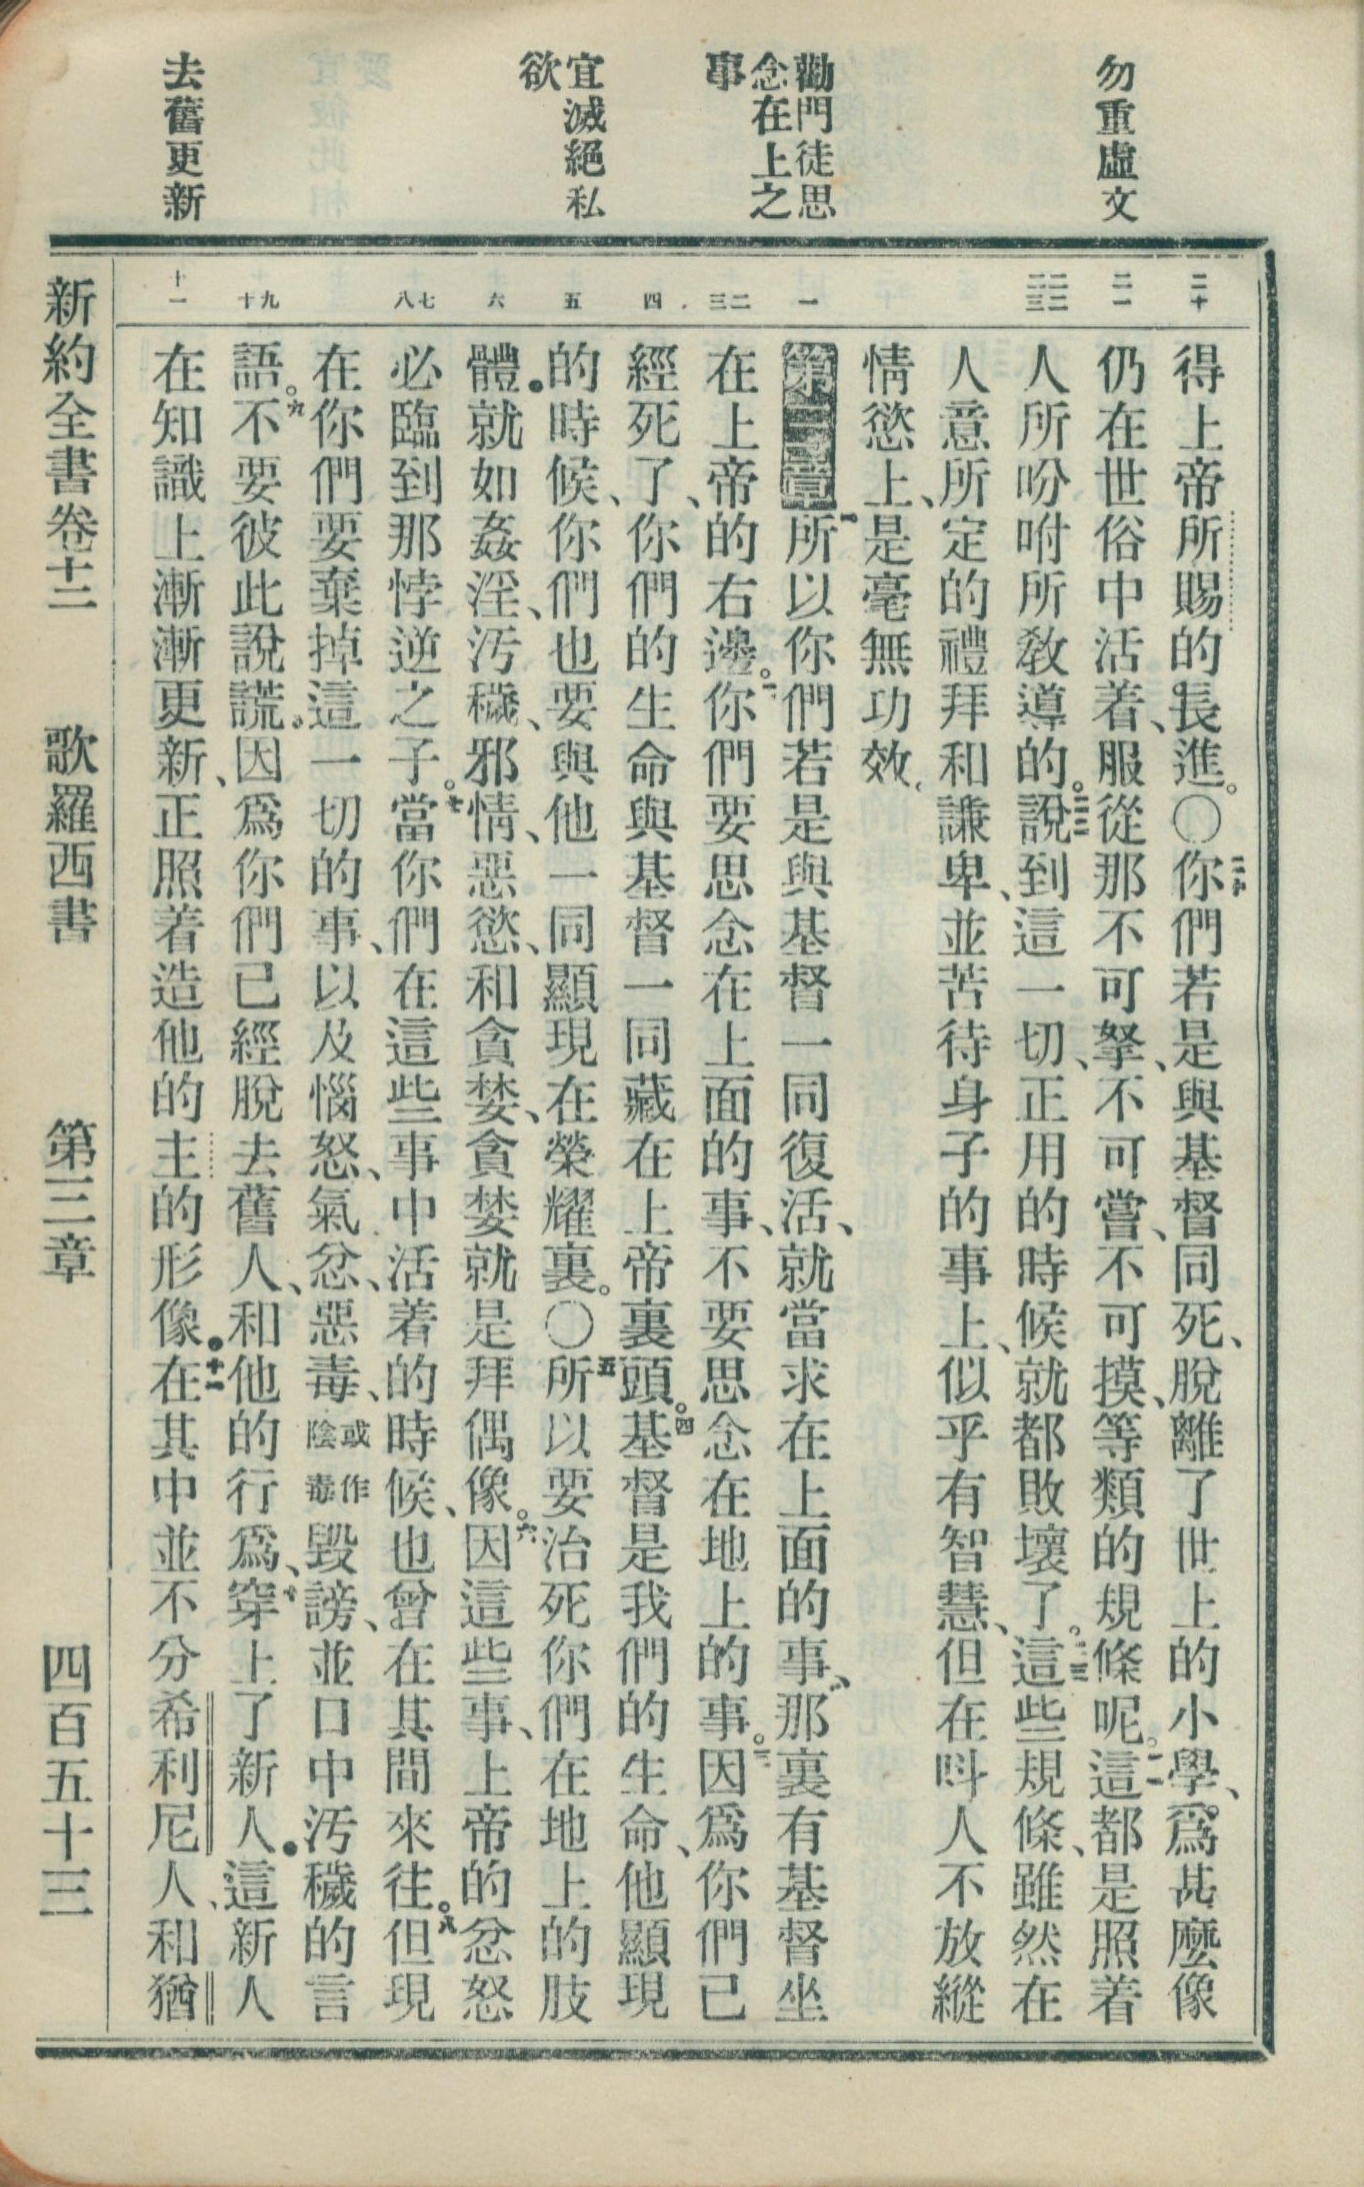 勿重虛文
勸門徒思
念在上之
事
宜滅絕私
欲
去舊更新
二十
二一
二二
二三
一
二
三
四
五
六
七
八
九
十
十一
得上帝所賜的長進。○二十你們若是與基督同死、脫離了世上的小學、爲甚麽像
仍在世俗中活着、服從那不可拏、不可嘗、不可摸、等類的規條呢。二一這都是照着
人所吩咐所敎導的。二二說到這一切、正用的時候就都敗壞了。二三這些規條、雖然在
人意所定的禮拜和謙卑、並苦待身子的事上、似乎有智慧、但在呌人不放縱
情慾上、是毫無功效、
第三章一所以你們若是與基督一同復活、就當求在上面的事、那裏有基督坐
在上帝的右邊。二你們要思念在上面的事、不要思念在地上的事。三因爲你們已
經死了、你們的生命與基督一同藏在上帝裏頭。四基督是我們的生命、他顯現
的時候、你們也要與他一同顯現在榮耀裏。○五所以要治死你們在地上的肢
體。就如姦淫、汚穢、邪情、惡慾、和貪婪、貪婪就是拜偶像。六因這些事、上帝的忿怒
必臨到那悖逆之子。七當你們在這些事中活着的時候、也曾在其間來往。八但現
在你們要棄掉這一切的事、以及惱怒、氣忿、惡毒、或作陰毒毀謗、並口中汚穢的言
語。九不要彼此說謊。因爲你們已經脫去舊人、和他的行爲、十穿上了新人。這新人
在知識上漸漸更新、正照着造他的主的形像。十一在其中並不分希利尼人、和猶
新約全書卷十二 歌羅西書 第三章 四百五十三